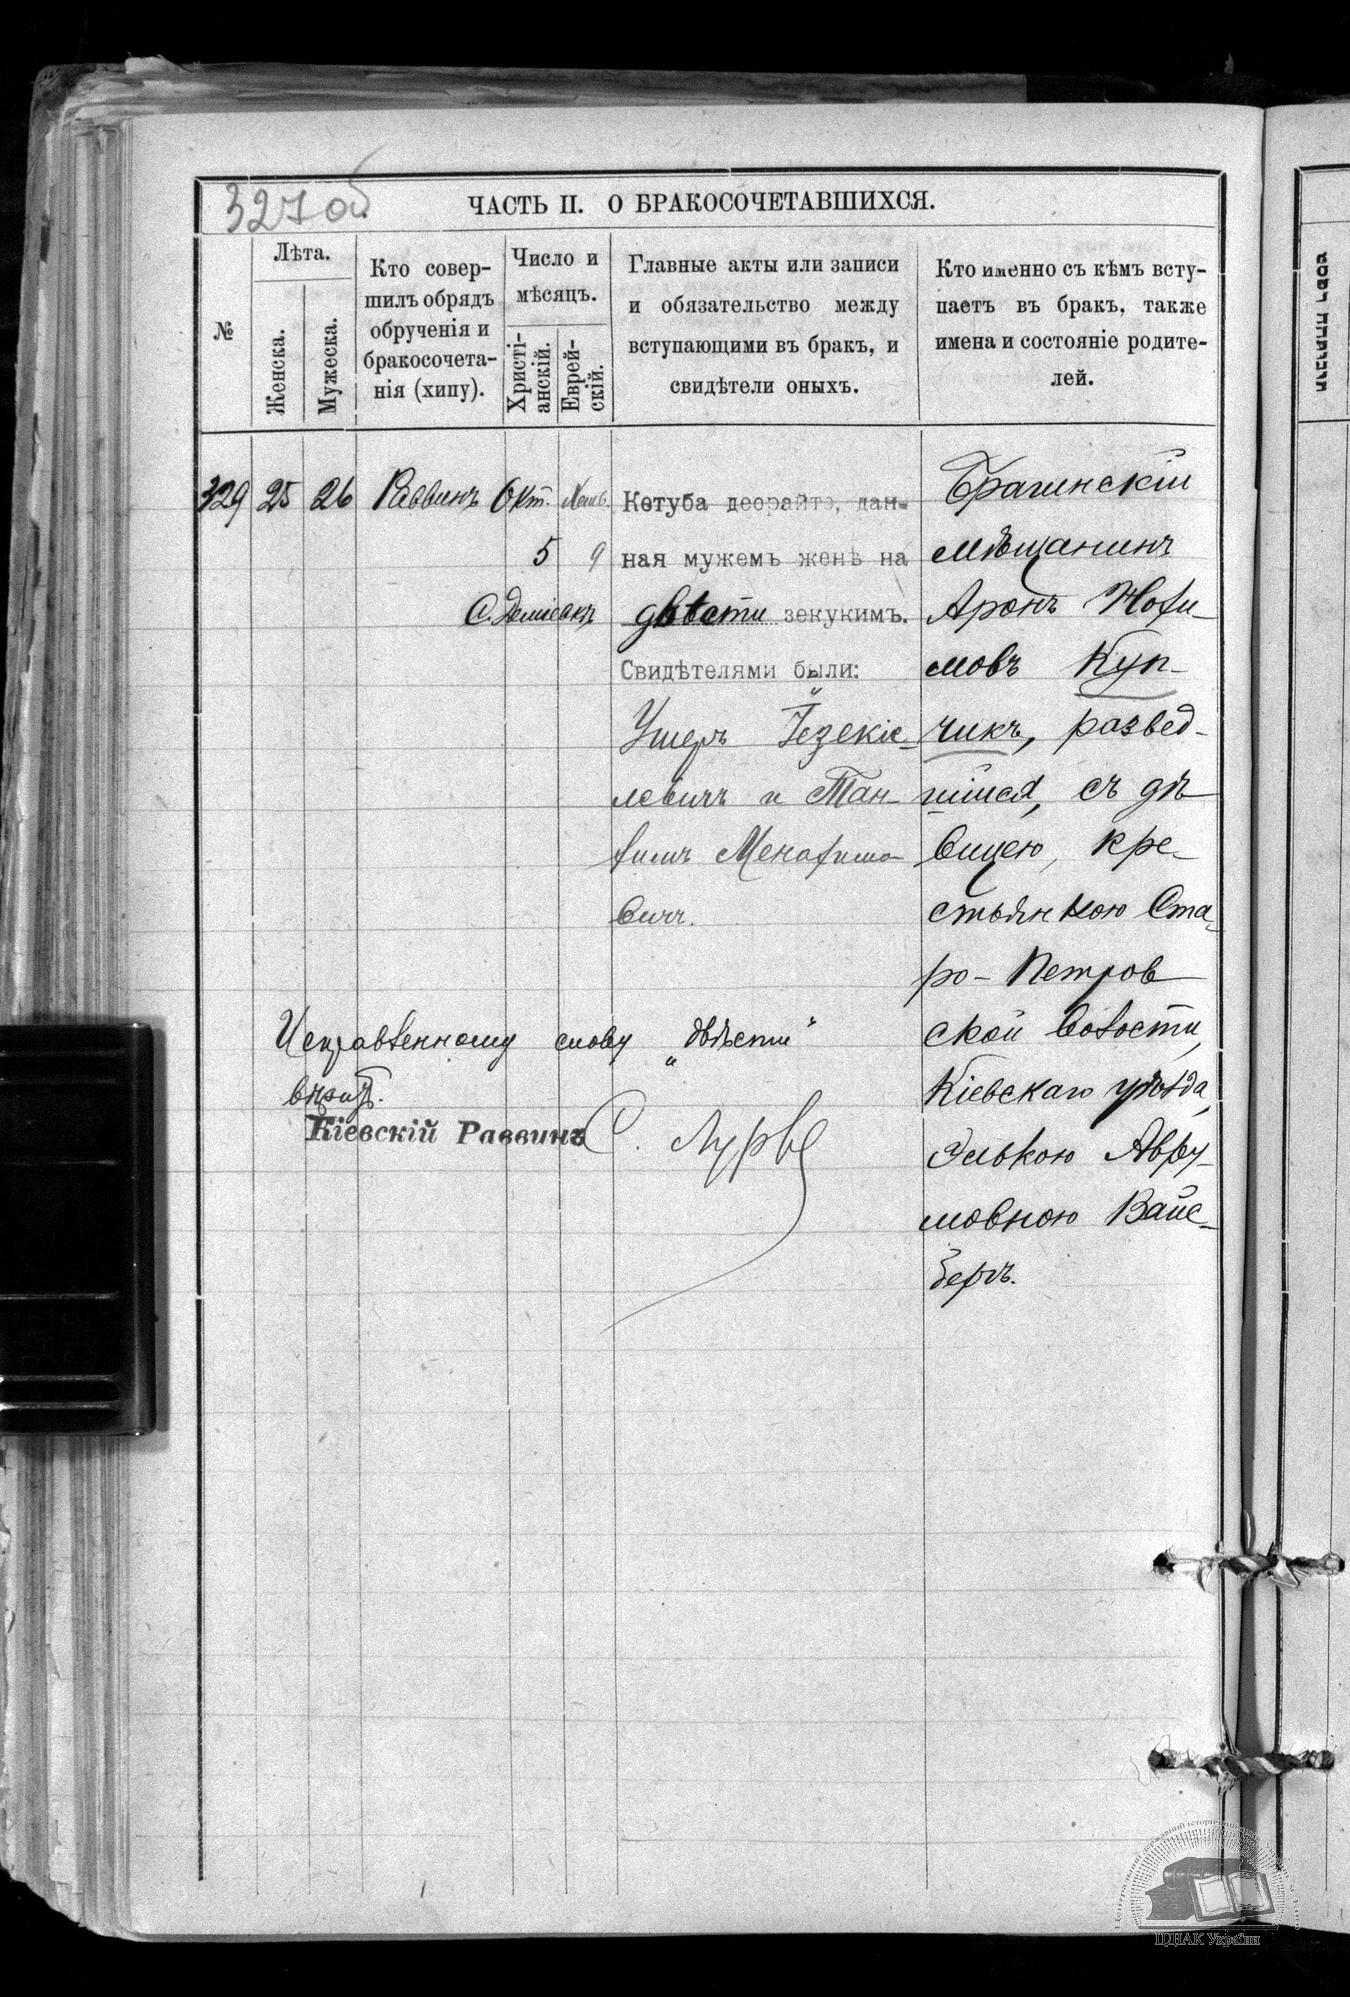 327 об
ЧАСТЬ II. О БРАКОСОЧЕТАВШИХСЯ.
№
Лѣта.
Женска.
Мужеска.
Кто совер-
шилъ обрядъ
обрученія и
бракосочета-
нія (хипу).
Число и
мѣсяцъ.
Христі-
анскій.
Еврей-
скій.
Главные акты или записи
и обязательство между
вступающими въ бракъ, и
свидѣтели оныхъ.
Кто именно съ кѣмъ всту-
паетъ въ бракъ, также
имена и состояніе родите-
лей.
329 25 26 Раввинъ Окт. Хешв.
5 9
С. Деміевкѣ
Кетуба деорайто, дан-
ная мужемъ женѣ на
двѣсти зекукимъ.
Свидѣтелями были:
Ушеръ Іезекіе-
левичъ и Тан-
химъ Менахимо-
вичъ.
Брагинскій
мѣщанинъ
Аронъ Нохи-
мовъ Куп-
чикъ, развед-
шійся, съ дѣ-
вицею, кре-
стьянкою Ста-
ро-Петров-
ской волости,
Кіевскаго уѣзда,
Элькою Авру-
мовною Вайс-
бергъ.
Исправленному слову „двѣсти“
вѣрить.
Кіевскій Раввинъ С. Лурье
ЦДІАК України